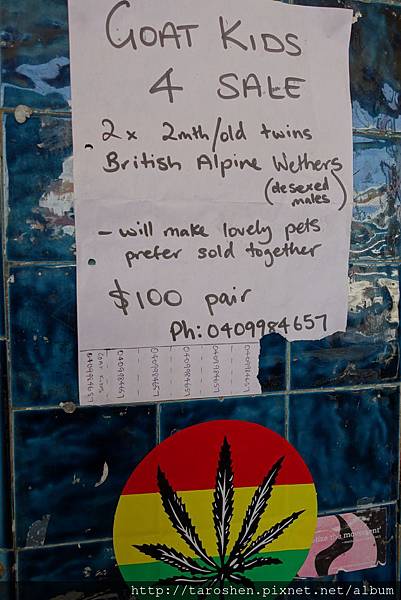 GOAT KIDS
4 SALE
2x 2mth/old twins
British Alpine Wethers
(desexed
males)
- will make lovely pets
prefer sold together
$100 pair
Ph: 0409984657
0409984657
GOAT KIDS
0409984657
0409984657
0409984657
0409984657
0409984657
the movement'
http://taroshen.pixnet.net/album